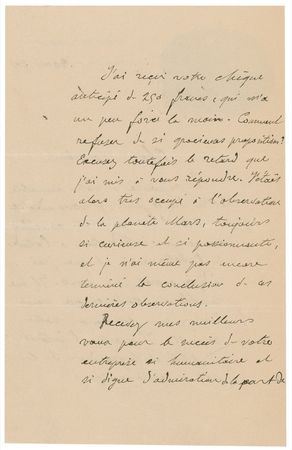 J'ai reçu votre chèque
anticipé de 250 francs, qui m'a
un peu forcé la main. Comment
refuser de si gracieuses propositions?
Excusez toutefois le retard que
j'ai mis à vous répondre. J'étais
alors très occupé à l'observation
de la planète Mars, toujours
si curieuse et si passionnante,
et je n'ai même pas encore
terminé la conclusion de ces
dernières observations.
Recevez mes meilleurs
vœux pour le succès de votre
entreprise si humanitaire et
si digne d'admiration de la part de